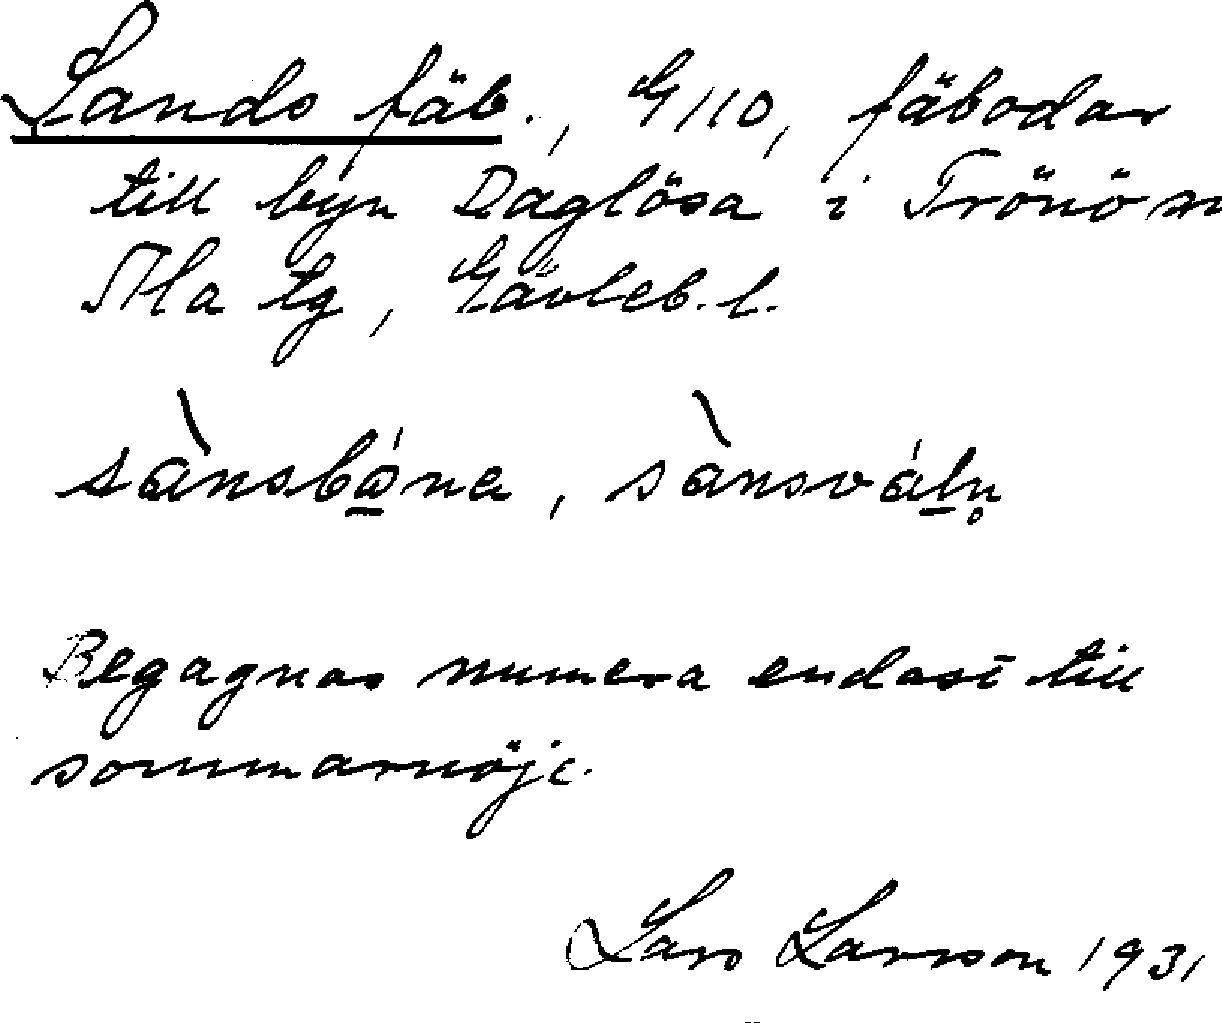 Sands fäb., G 110, fäbodar
till byn Daglösa i Trönö sn
Ala tg, Gävleb. l.
sànsbó̲na, sànsvál̲n̥
Begagnas numera endast till
sommarnöje.
Lars Larsson 1931